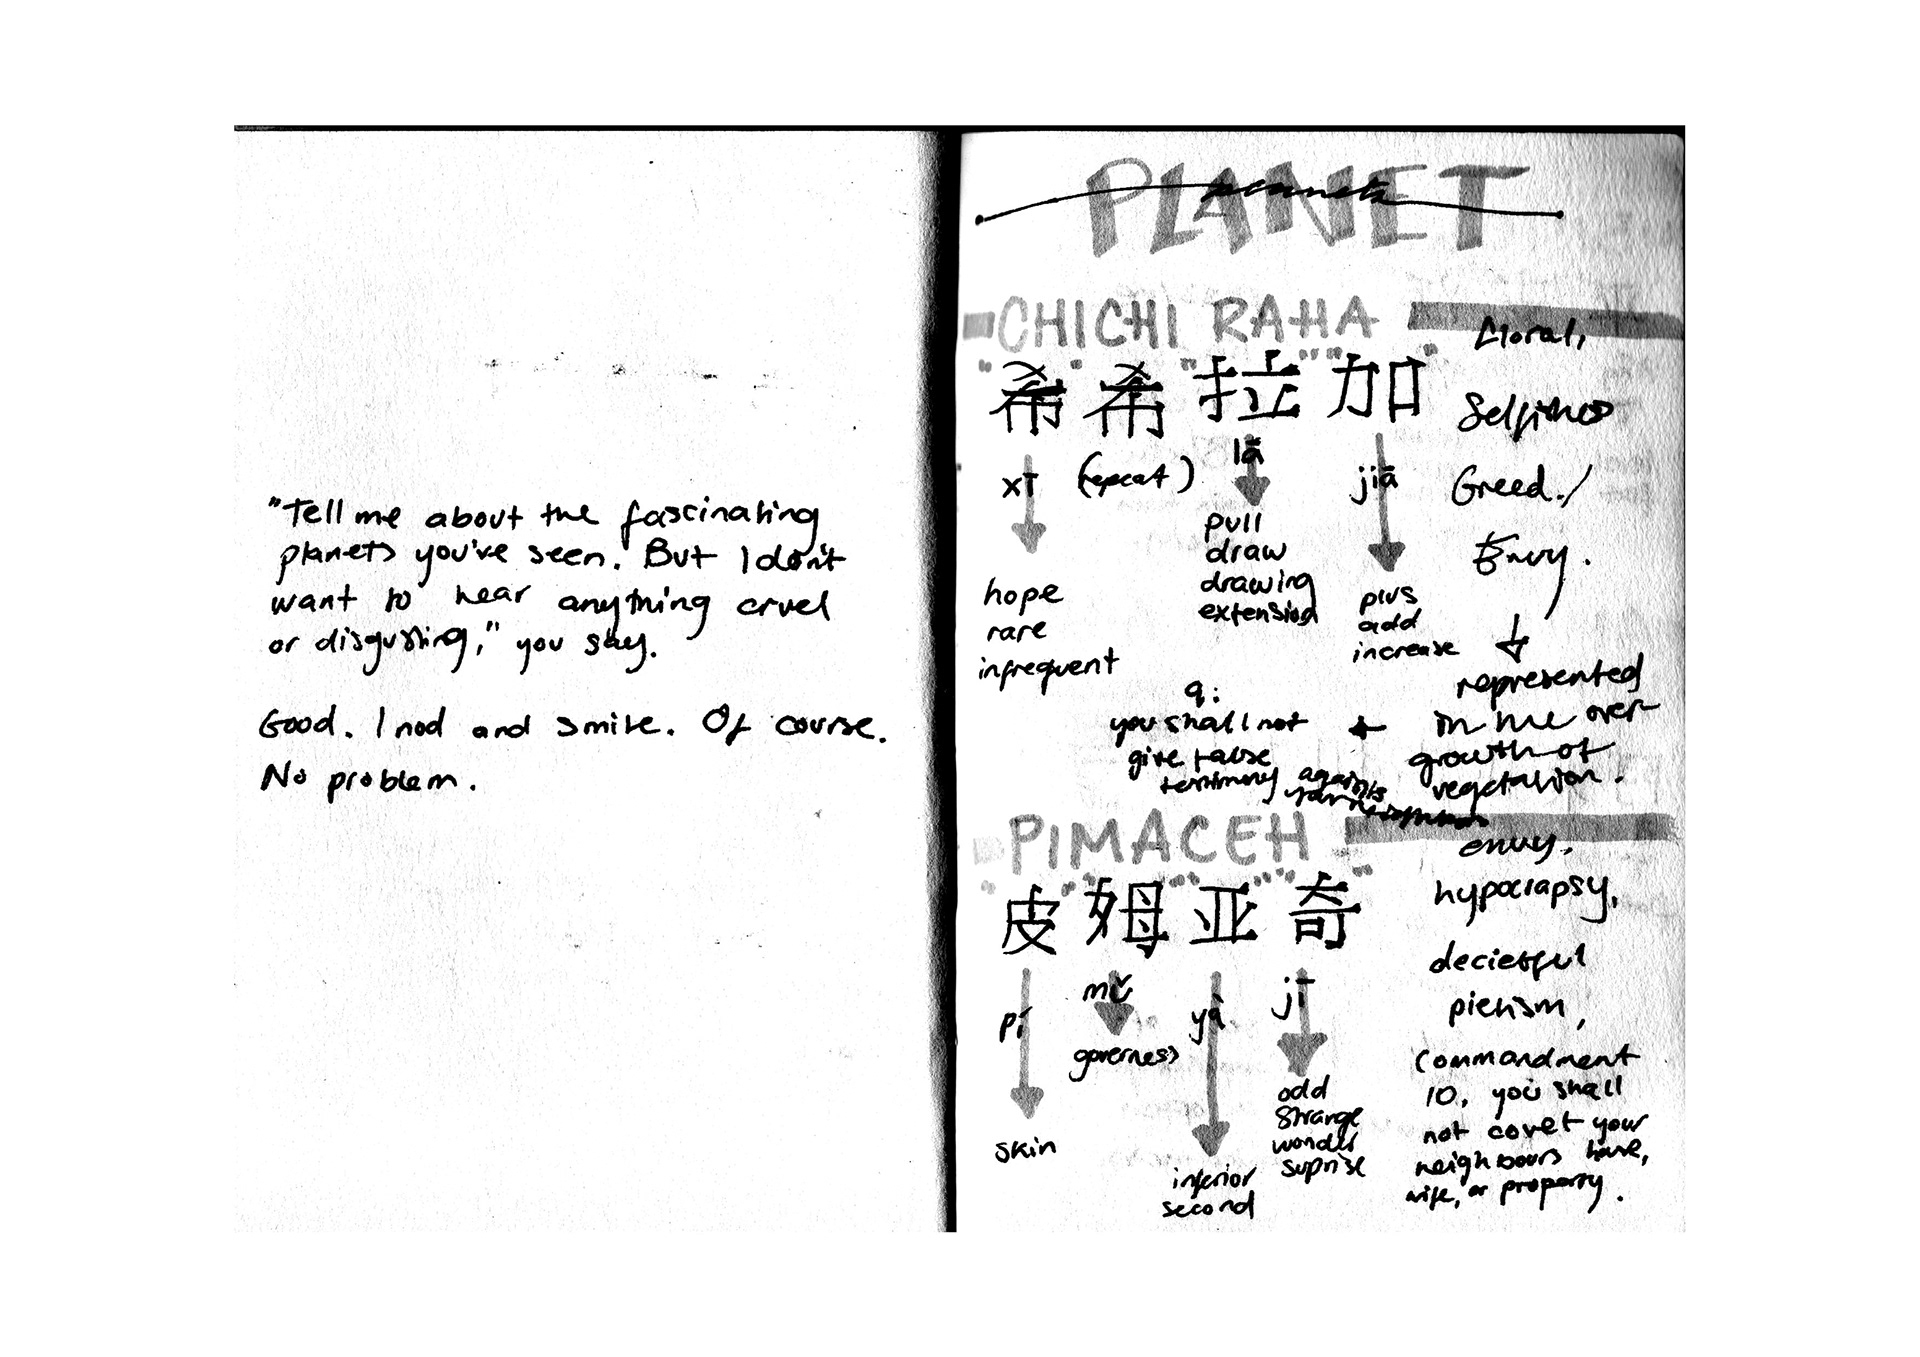 "Tell me about the fascinating
planets you've seen. But I don't
want to hear anything cruel
or disgusting," you say.
Good. I nod and smile. Of course.
No problem.
PLANET
planets
CHICHI RAHA
"希" 希 "拉" "加"
xī (repeat) lā jiā
hope
rare
infrequent
pull
draw
drawing
extension
plus
add
increase
Floral,
Greed./
Envy.
represented
in the over-
growth of
vegetation.
9:
you shall not
give false
testimony against
your
PIMACEH
"皮" "姆" "亚" "奇"
pí mǔ yà jī
skin
governess
inferior
second
odd
strange
wonder
suprise
envy,
hypocrapsy,
decietful
pietism,
commandment
10, you shall
not covet your
neighbours house,
wife, or property.